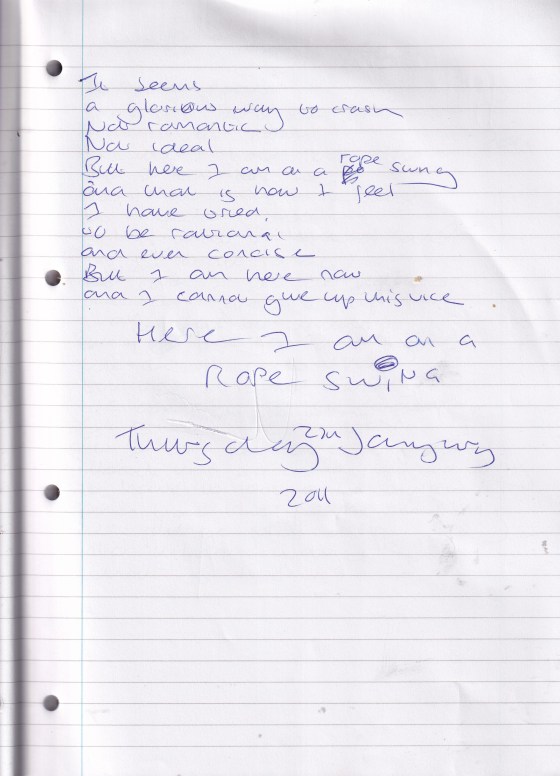 It seems
a glorious way to crash
Not romantic
Not ideal
But here I am on a rope swing
and that is how I feel
I have tried,
to be rational
and even concise
But I am here now
and I cannot give up this vice
Here I am on a
Rope SwiNG
Thursday January
2011